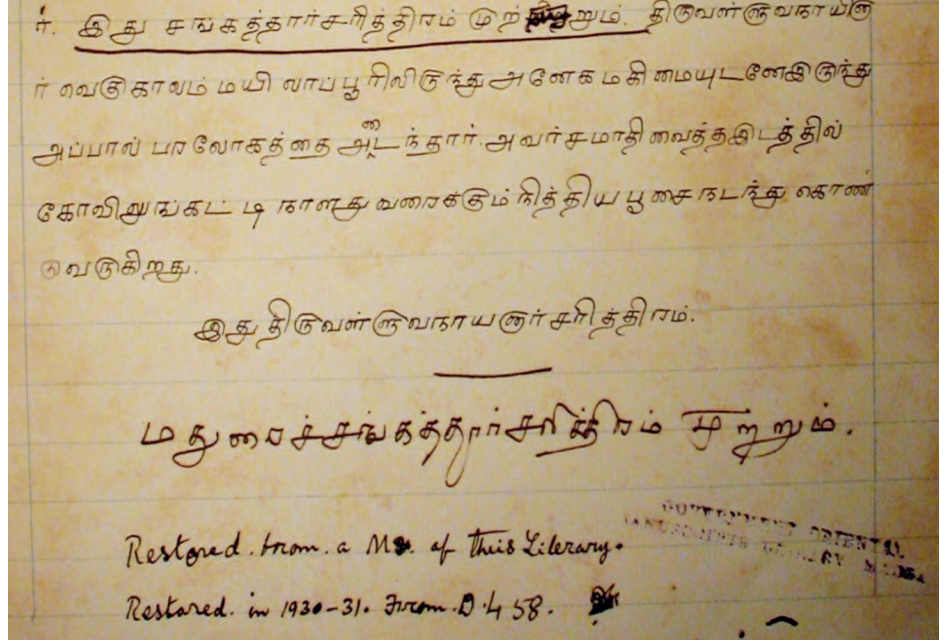 ர். இது சங்கத்தார்சரித்திரம் முற்றும். திருவள்ளுவநாயனா
ர் வெகுகாலம் மயிலாப்பூரிலிருந்து அனேக மகிமையுடனேஇருந்து
அப்பால் பரலோகத்தை அடைந்தார். அவர்சமாதிவைத்தஇடத்தில்
கோவிலுங்கட்டி நாளது வரைக்கும் நித்திய பூசைநடந்து கொண்
டுவருகிறது.
இது திருவள்ளுவநாயனார்சரித்திரம்.
மதுரைச்சங்கத்தார்சரித்திரம் முற்றும்.
Restored from a Ms. of this Library.
Restored in 1930-31. From D. 458.
GOVERNMENT ORIENTAL
MANUSCRIPTS LIBRARY MADRAS